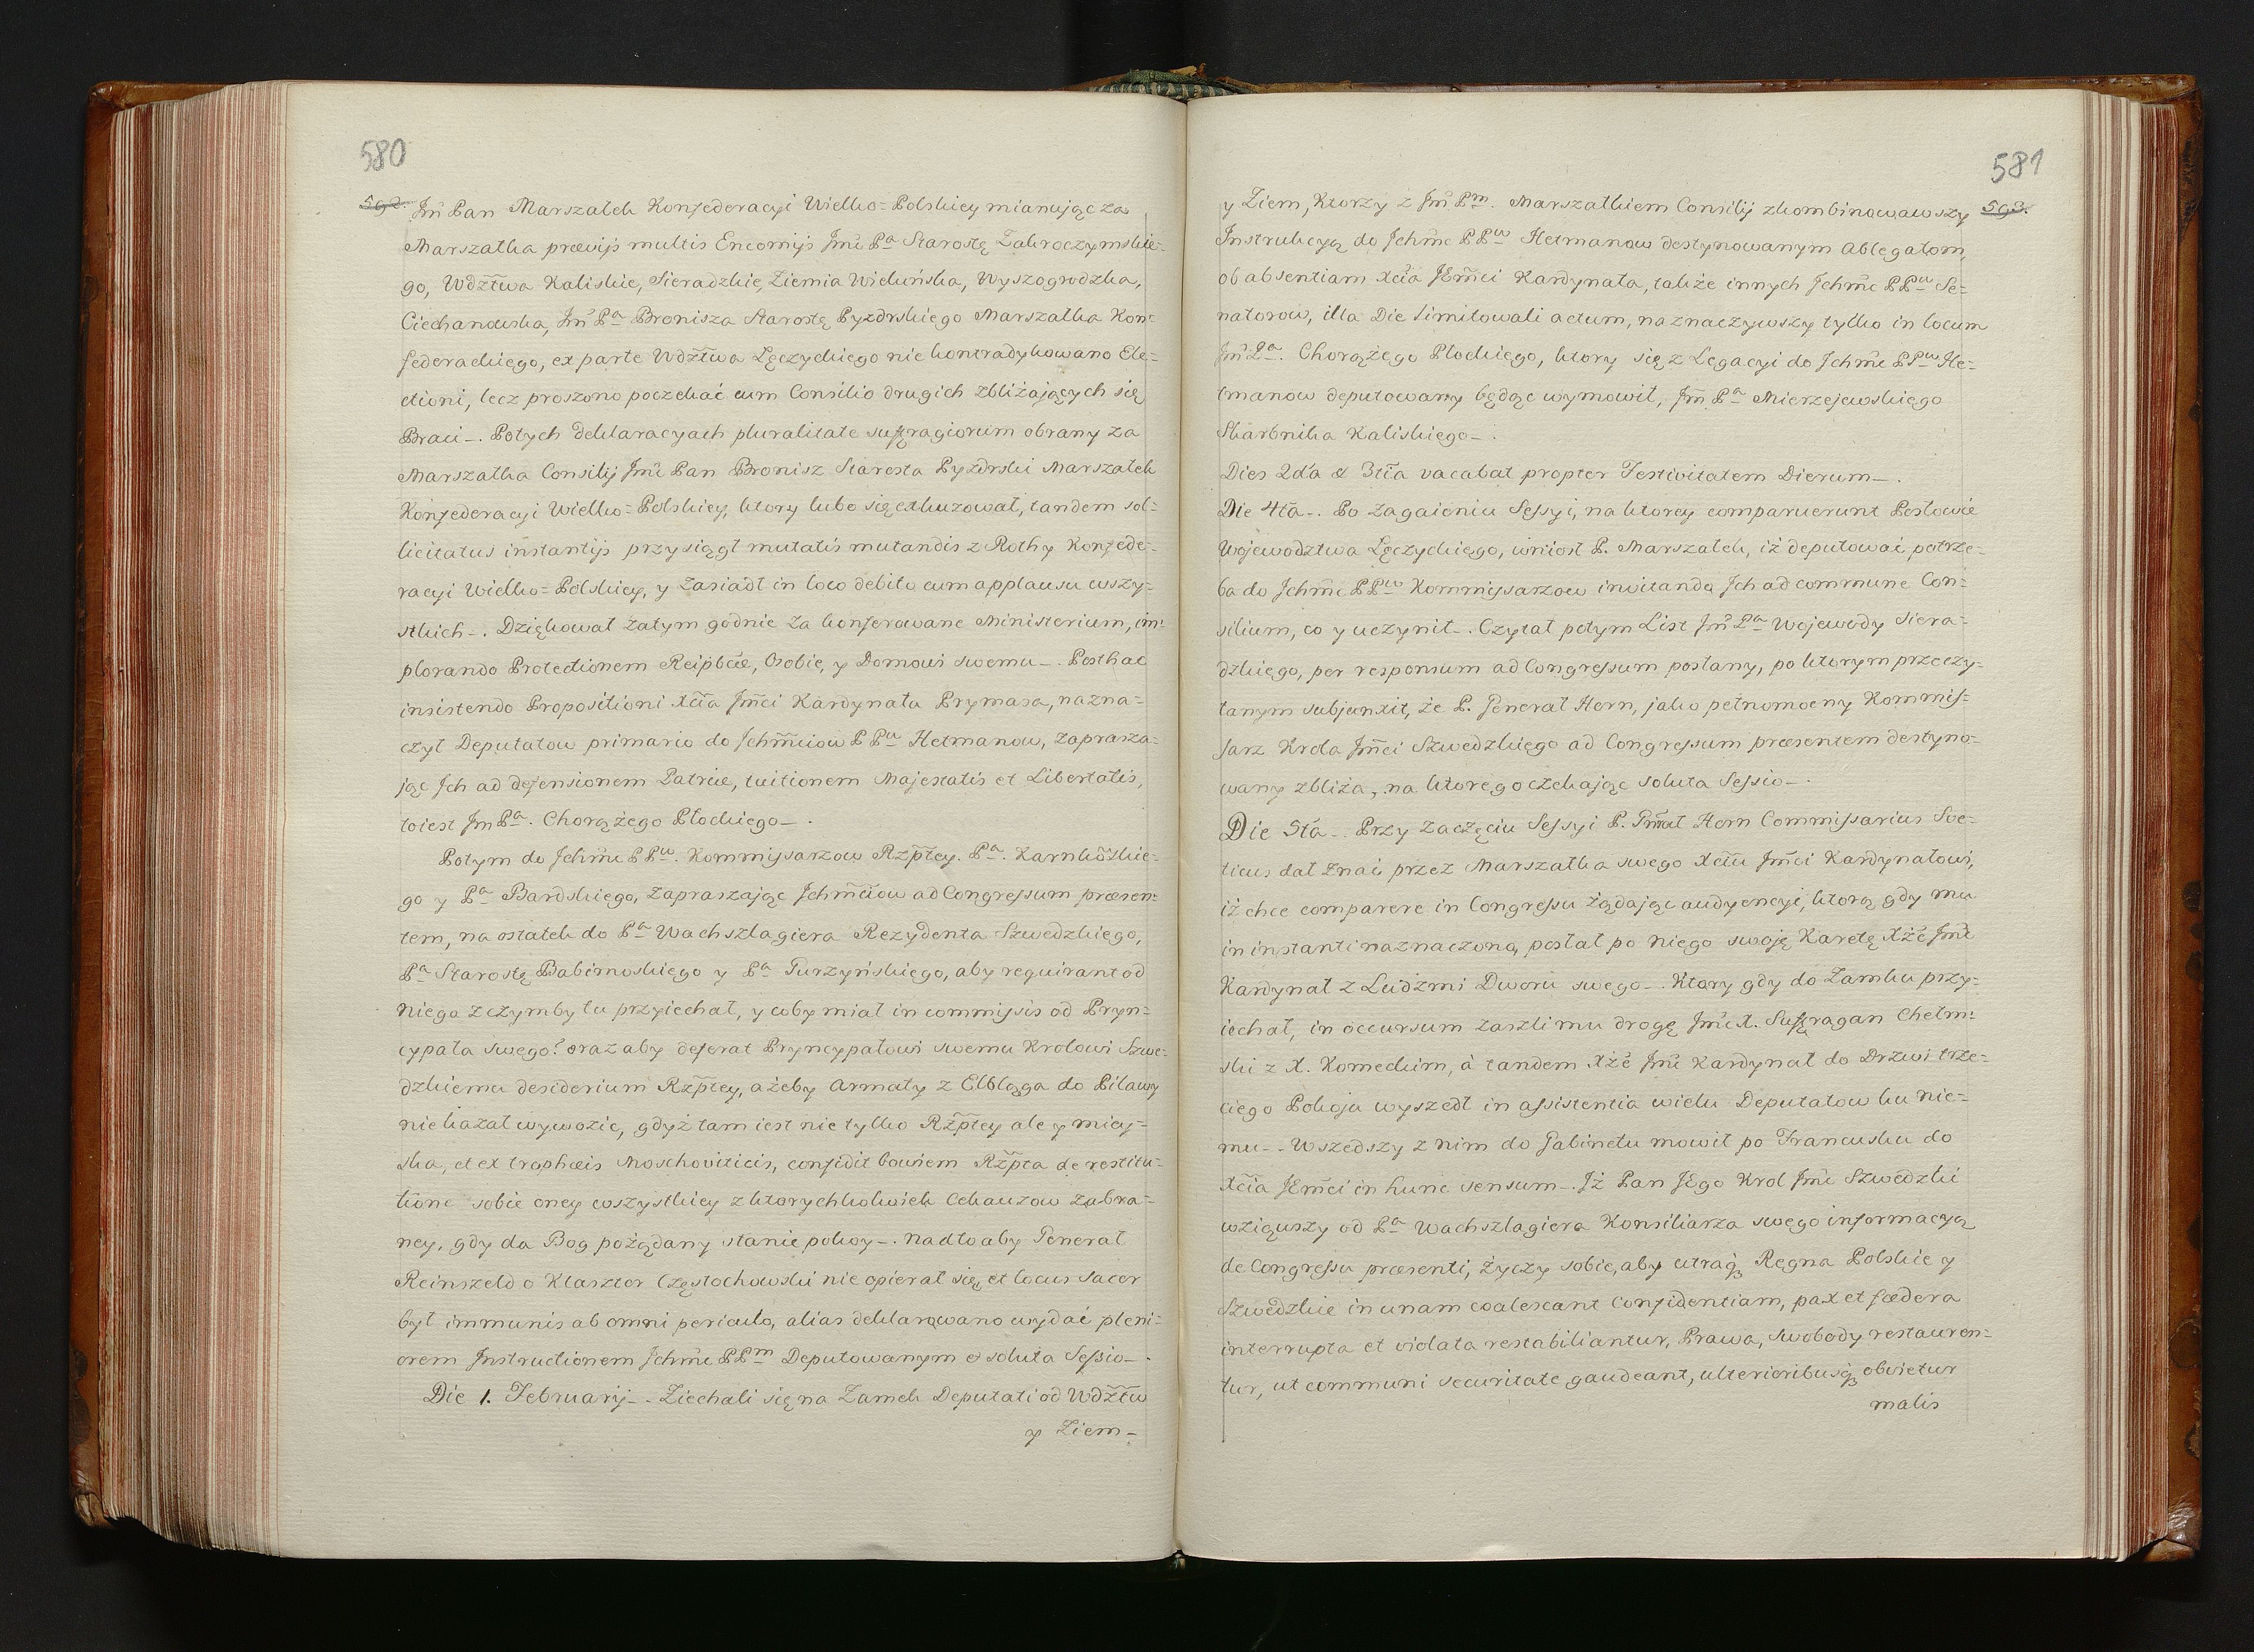 580
592. Jm̃ Pan Marszałek Konfederacyi Wielko=Polskiey mianując za
Marszałka præviis multis Encomijs Jm̃ci Pa Starostę Zakroczymskie=
go, Wdz̃twa Kaliskie, Sieradzkie, Ziemia Wieluńska, Wyszogrodzka,
Ciechanowska, Jm̃ Pa Bronisza Starostę Pyzdrskiego Marszałka Kon=
federackiego, ex parte Wdz̃twa Łęczyckiego nie kontradykowano Ele=
ctioni, lecz proszono poczekać cum Consilio drugich zbliżających się
Braci_. Potych deklaracyach pluralitate suffragiorum obrany za
Marszałka Consilij Jm̃c Pan Bronisz Starosta Pyzdrski Marszałek
Konfederacyi Wielko=Polskiey, ktory lubo się exkuzował, tandem sol=
licitatus instantijs przysiągł mutatis mutandis z Rothy Konfede=
racyi Wielko=Polskiey, y zasiadł in loco debito cum applausu wszy=
stkich_. Dziękował zatym godnie za konferowane Ministerium, im=
plorando Protectionem Reipb̃cæ, Osobie, y Domowi swemu_. Posthac
insistendo Propositioni Xc̃ia Jm̃ci Kardynała Prymasa, nazna=
czył Deputatow primario do Jchm̃ciow PPw Hetmanow, zaprasza=
jąc Jch ad defensionem Patriæ, tuitionem Majestatis et Libertatis,
toiest Jm Pa. Chorążego Płockiego_.
Potym do Jchm̃c PPw. Kommissarzow Rzp̃tey. Pa. Karnkowskie=
go y Pa Bardskiego, zapraszając Jchm̃ciow ad Congressum præsen=
tem, na ostatek do Pa Wachszlagiera Rezydenta Szwedzkiego,
Pa Starostę Babimoskiego y Pa Turzyńskiego, aby requirant od
niego z czymby tu przyiechał, y coby miał in commissis od Pryn=
cypała swego? oraz aby deferat Pryncypałowi swemu Krolowi Szwe=
dzkiemu desiderium Rzp̃tey, ażeby Armaty z Elbląga do Pilawy
nie kazał wywozić, gdyż tam iest nie tylko Rzp̃tey ale y miey=
ska, et ex trophæis Moschoviticis, confidit bowiem Rzp̃ta de restitu=
tione sobie oney wszystkiey z ktorychkolwiek Cekauzow zabra=
ney, gdy da Bog pożądany stanie pokoy_. Nadto aby Generał
Reinszeld o Klasztor Częstochowski nie opierał się, et locus sacer
był immunis ab omni periculo, alias deklarowano wydać pleni=
orem Instructionem Jchm̃c PPm Deputowanym & soluta Sessio_.
Die 1. Februarij_. Ziechali się na Zamek Deputati od Wdz̃tw
y Ziem_
581
593.
y Ziem, Ktorzy z Jm̃ Pm. Marszałkiem Consilij zkombinowawszy
Instrukcyą do Jchm̃c PPw Hetmanow destynowanym Ablegatom,
ob absentiam Xc̃ia JEm̃ci Kardynała, także innych Jchm̃c PPw Se=
natorow, illa Die limitowali actum, naznaczywszy tylko in locum
Jm̃ Pa. Chorążego Płockiego, ktory się z Legacyi do Jchm̃c PPw He=
tmanow deputowany będąc wymowił, Jm̃ Pa Mierzejewskiego
Skarbnika Kaliskiego_.
Dies 2d̃a & 3tĩa vacabat propter Festivitatem Dierum_.
Die 4t̃a_. Po zagaieniu Sessyi, na ktorey comparuerunt Posłowie
Wojewodztwa Łęczyckiego, wniosł P. Marszałek, iż deputować potrze=
ba do Jchm̃c PPw Kommissarzow invitando Jch ad commune Con=
silium, co y uczynił_. Czytał potym List Jm̃ Pa Wojewody Siera=
dzkiego, per responsum ad Congressum posłany, po ktorym przeczy=
tanym subjunxit, że P. Generał Horn, jako pełnomocny Kommis=
sarz Krola Jm̃ci Szwedzkiego ad Congressum præsentem destyno=
wany zbliża, na ktorego czekając soluta Sessio_.
Die 5t̃a_. Przy zaczęciu Sessyi P. Gn̄rał Horn Commissarius Sve=
ticus dał znać przez Marszałka swego Xc̃iu Jm̃ci Kardynałowi,
iż chce comparere in Congressu żądając audyencyi, ktorą gdy mu
in instanti naznaczono, posłał po niego swoję Karetę Xż̃e Jm̃c
Kardynał z Ludzmi Dworu swego_. Ktory gdy do Zamku przy=
iechał, in occursum zaszli mu drogę Jm̃c X. Suffragan Chełm=
ski z X. Komeckim, à tandem Xż̃e Jm̃c Kardynał do Drzwi trze=
ciego Pokoju wyszedł in assistentia wielu Deputatow ku nie=
mu_. Wszedszy z nim do Gabinetu mowił po Francusku do
Xc̃ia JEm̃ci in hunc sensum_. Jż Pan JEgo Krol Jm̃c Szwedzki
wziąwszy od Pa Wachszlagiera Konsiliarza swego informacyą
de Congressu præsenti, życzy sobie, aby utraq3 Regna Polskie y
Szwedzkie in unam coalescant Confidentiam, pax et fœdera
interrupta et violata restabiliantur, Prawa, Swobody restauren=
tur, ut communi securitate gaudeant, ulterioribusq3 obvietur
malis